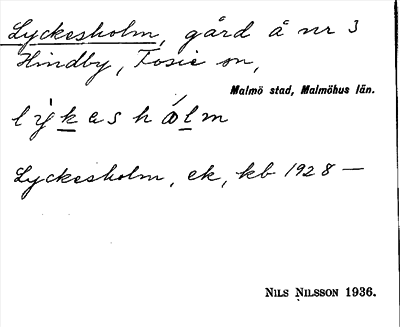 Lyckesholm, gård å nr 3
Hindby, Fosie sn,
Malmö stad, Malmöhus län.
lỳkeshólm
Lyckesholm, ek, kb 1928 —
NILS NILSSON 1936.